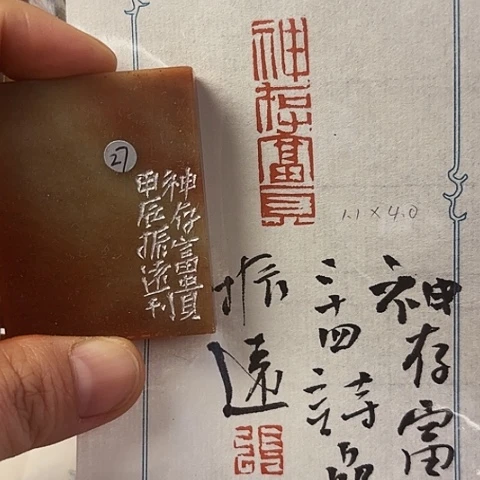 神存富貴
27
神存富貴
甲辰振遠刊
1.1×4.0
神存富
二十四詩品
振遠